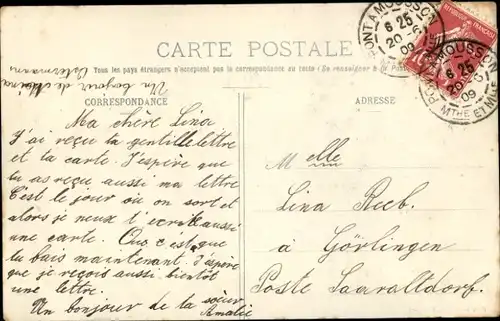 CARTE POSTALE
Tous les pays étrangers n'acceptent pas la correspondance au recto (Se renseigner à la Poste)
Un bonjour de
Ostermann
CORRESPONDANCE
Ma chère Lina
J'ai reçu la gentille lettre
et la carte. J'espère que
tu as reçu aussi ma lettre
C'est le jour où on sort et
alors je veux t'ecrire aussi
une carte. Que c'est que
tu fais maintenant. J'éspère
que je reçois aussi bientôt
une lettre.
Un bonjour de ta soeur
Amalie
ADRESSE
Melle
Lina Reeb.
à Görlingen
Poste Saaraltdorf.
PONT A MOUSSON
6 25
20 -6
09
RÉPUBLIQUE FRANÇAISE
PONT A MOUSSON
6 25
20 -6
09
MTHE ET MLLE